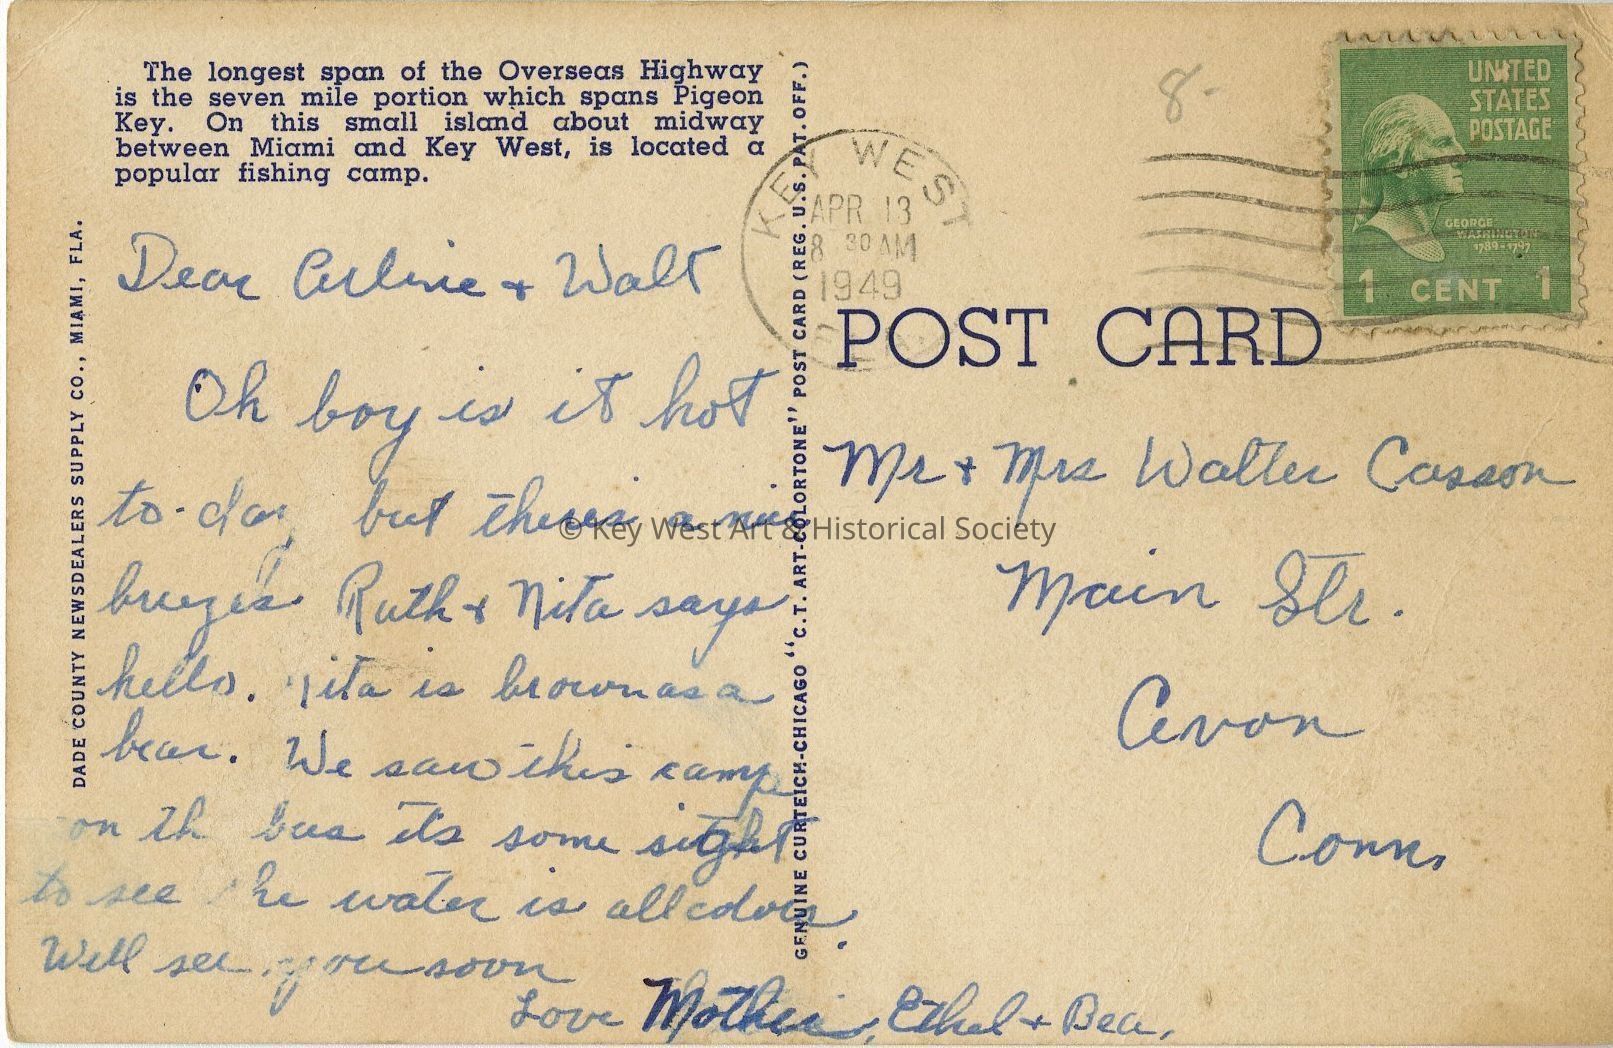 The longest span of the Overseas Highway
is the seven mile portion which spans Pigeon
Key. On this small island about midway
between Miami and Key West, is located a
popular fishing camp.
DADE COUNTY NEWSDEALERS SUPPLY CO., MIAMI, FLA.
Dear Arline + Walt
Oh boy is it hot
to-day but theres a nice
breeze. Ruth + Nita says
hello. Nita is brown as a
bear. We saw this camp
on th bus its some sight
to see the water is all colors.
Will see you soon
Love Mother, Ethel + Bea,
GENUINE CURTEICH-CHICAGO "C.T. ART-COLORTONE" POST CARD (REG. U.S. PAT. OFF.)
8-
KEY WEST
APR 13
8 30 AM
1949
FLA
UNITED
STATES
POSTAGE
GEORGE
WASHINGTON
1789-1797
1 CENT 1
POST CARD
Mr + Mrs Walter Casson
Main Str.
Avon
Conn.
© Key West Art & Historical Society